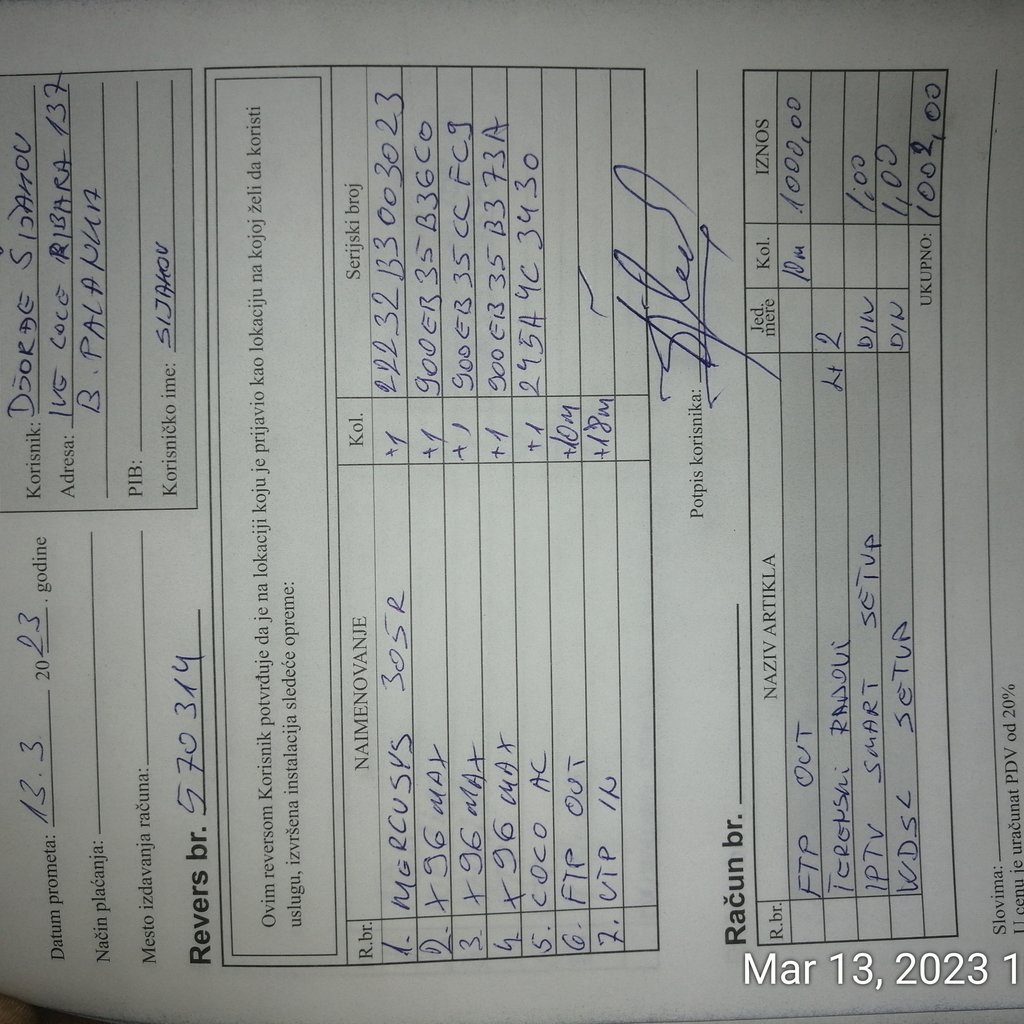 Datum prometa: 13.3 2023. godine
Način plaćanja:
Mesto izdavanja računa:
Korisnik: DŽORDŽE ŠIJAKOV
Adresa: IVE LOLE RIBARA 137
B. PALANKA
PIB:
Korisničko ime: SIJAKOV
Revers br. 570314
Ovim reversom Korisnik potvrđuje da je na lokaciji koju je prijavio kao lokaciju na kojoj želi da koristi
uslugu, izvršena instalacija sledeće opreme:
R.br. NAIMENOVANJE Kol. Serijski broj
1. MERCUSYS 305R +1 22232B3003023
2. X96 MAX +1 900EB35B36C0
3. X96 MAX +1 900EB35CCFC9
4. X96 MAX +1 900EB35B373A
5. COCO AC +1 245A4C3430
6. FTP OUT +10m
7. UTP IN +18m
Potpis korisnika:
Račun br.
R.br. NAZIV ARTIKLA Jed. mere Kol. IZNOS
FTP OUT 10m 1000,00
TERENSKI RADOVI 2
IPTV SMART SETUP DIN 1,00
VDSL SETUP DIN 1,00
UKUPNO: 1002,00
Slovima:
U cenu je uračunat PDV od 20%
Mar 13, 2023 1